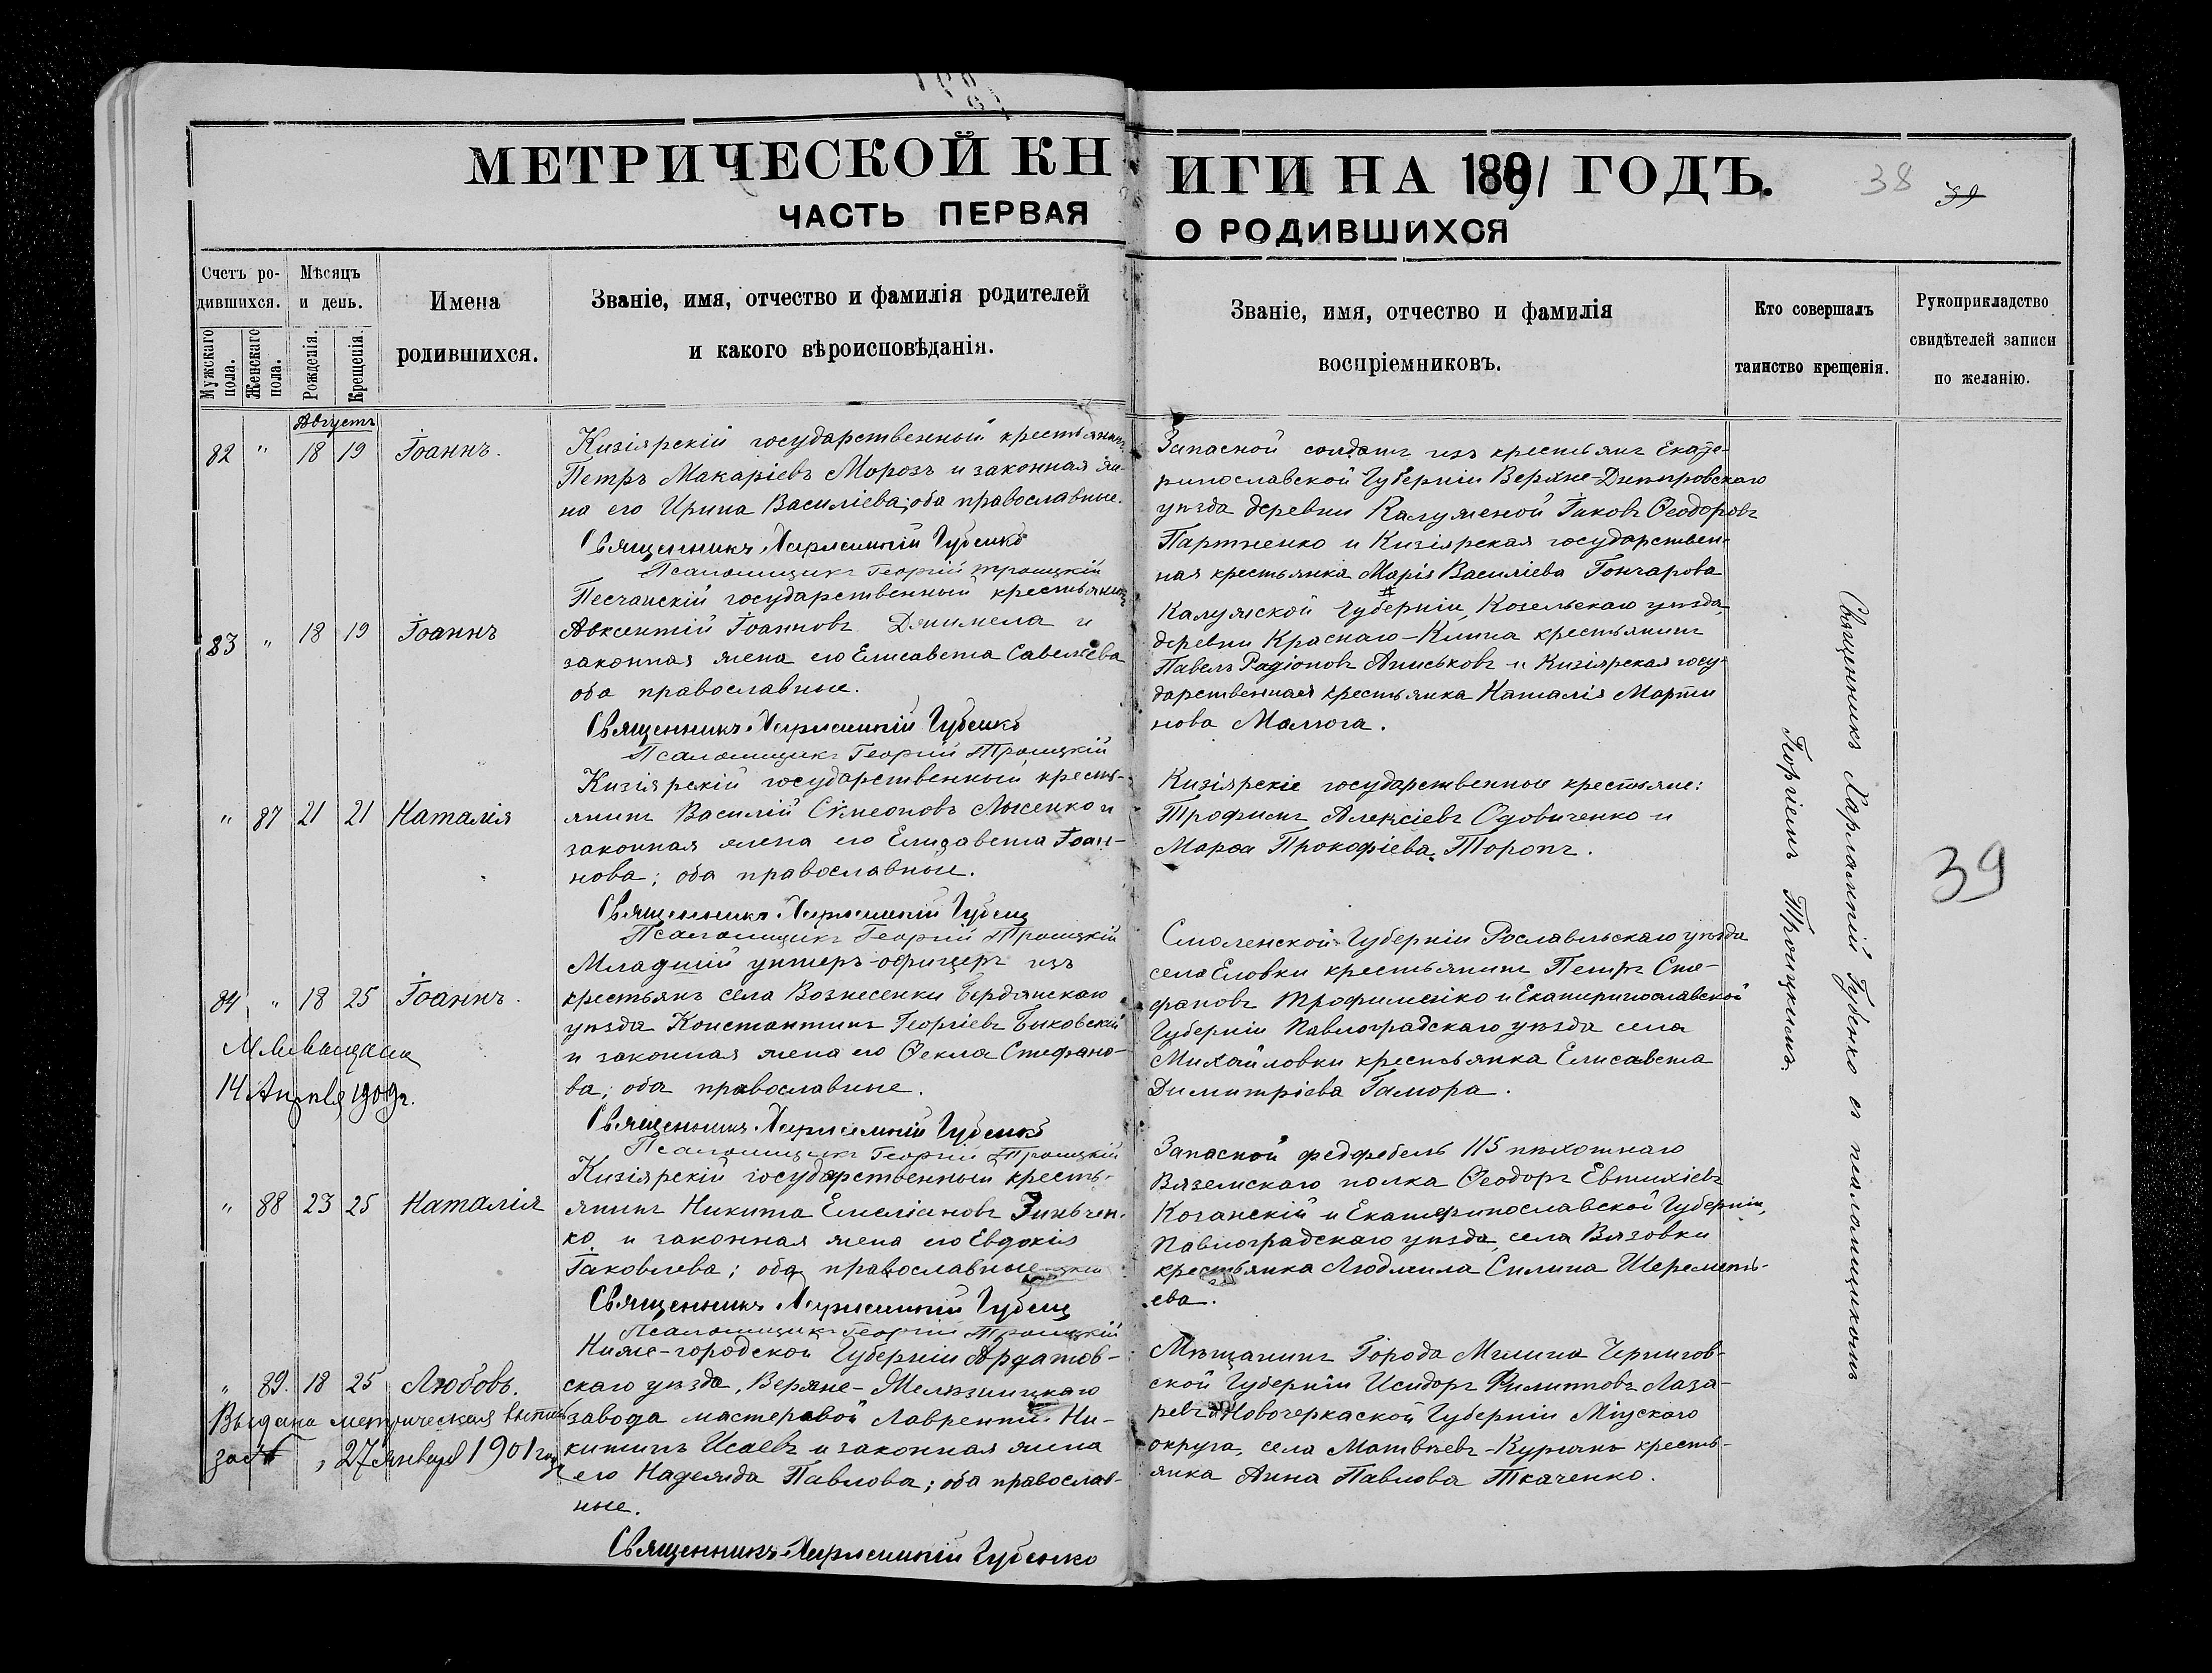 МЕТРИЧЕСКОЙ КНИГИ НА 1891 ГОДЪ.
38
39
ЧАСТЬ ПЕРВАЯ О РОДИВШИХСЯ
Счетъ ро-
дившихся.
Мужскаго пола.
Женскаго пола.
Мѣсяцъ
и день.
Рожденія.
Крещенія.
Имена
родившихся.
Званіе, имя, отчество и фамилія родителей
и какого вѣроисповѣданія.
Званіе, имя, отчество и фамилія
воспріемниковъ.
Кто совершалъ
таинство крещенія.
Рукоприкладство
свидѣтелей записи
по желанію.
Августъ
82 " 18 19 Іоаннъ.
Кизіярскій государственный крестьянинъ
Петръ Макаріевъ Морозъ и законная же-
на его Ирина Василіева; оба православные.
Священникъ Харлампій Губенко
Псаломщикъ Георгій Троицкій
Запасной солдатъ изъ крестьянъ Екате-
ринославской Губерніи Верхне-Днипровскаго
уѣзда деревни Калуженой Іаковъ Ѳеодоровъ
Партненко и Кизіярская государствен-
ная крестьянка Марія Василіева Гончарова
83 " 18 19 Іоаннъ
Песчанскій государственный крестьянинъ
Авксентій Іоанновъ Джимела и
законная жена его Елисавета Савеліева
оба православные.
Священникъ Харлампій Губенко
Псаломщикъ Георгій Троицкій
Калужской Губерніи, Козельскаго уѣзда,
деревни Краснаго-Клина крестьянинъ
Павелъ Радіоновъ Аниськовъ и Кизіярская госу-
дарственная крестьянка Наталія Марти
нова Малюга.
" 87 21 21 Наталія
Кизіярскій государственный кресть-
янинъ Василій Сѵмеоновъ Лысенко и
законная жена его Елизавета Іоан-
нова; оба православные.
Священникъ Харлампій Губенко
Псаломщикъ Георгій Троицкій
Кизіярскіе государственные крестьяне:
Трофимъ Алексіевъ Одовиченко и
Марѳа Прокофіева Торопъ.
84 " 18 25 Іоаннъ.
14 Апрѣля 1909г.
Младшій унтеръ-офицеръ изъ
крестьянъ села Вознесенки Бердянскаго
уѣзда Константинъ Георгіевъ Быковскій
и законная жена его Ѳекла Стефано-
ва; оба православные.
Священникъ Харлампій Губенко
Псаломщикъ Георгій Троицкій
Смоленской Губерніи Рославльскаго уѣзда
села Еловки крестьянинъ Петръ Сте-
фановъ Трофименко и Екатеринославской
Губерніи Павлоградскаго уѣзда села
Михайловки крестьянка Елисавета
Димитріева Гамора.
" 88 23 25 Наталія
Кизіярскій государственный кресть-
янинъ Никита Емеліановъ Зиньчен-
ко и законная жена его Евдокія
Іаковлева; оба православные
Священникъ Харлампій Губенко
Псаломщикъ Георгій Троицкій
Запасной федфебель 115 пѣхотнаго
Вяземскаго полка Ѳеодоръ Евтихіевъ
Коганскій и Екатеринославской Губерніи,
Павлоградскаго уѣзда, села Вязовки
крестьянка Людмила Силина Шереметь-
ева.
" 89. 18 25 Любовь.
Выдана метрическая выпись
за № , 27 января 1901 года
Ниже-городской Губерніи Ардатов-
скаго уѣзда, Верхне-Мелюзинцкаго
завода мастеровой Лаврентій Ни-
китинъ Исаевъ и законная жена
его Надежда Павлова; оба православ-
ные.
Священникъ Харлампій Губенко
Мѣщанинъ Города Мглина Чернигов-
ской Губерніи Исидоръ Филипповъ Лаза-
ревъ и Новочеркаской Губерніи Міускаго
округа, села Матвѣевъ-Курганъ кресть-
янка Анна Павлова Ткаченко.
Священникъ Харлампій Губенко съ псаломщикомъ
Георгіемъ Троицкимъ.
39